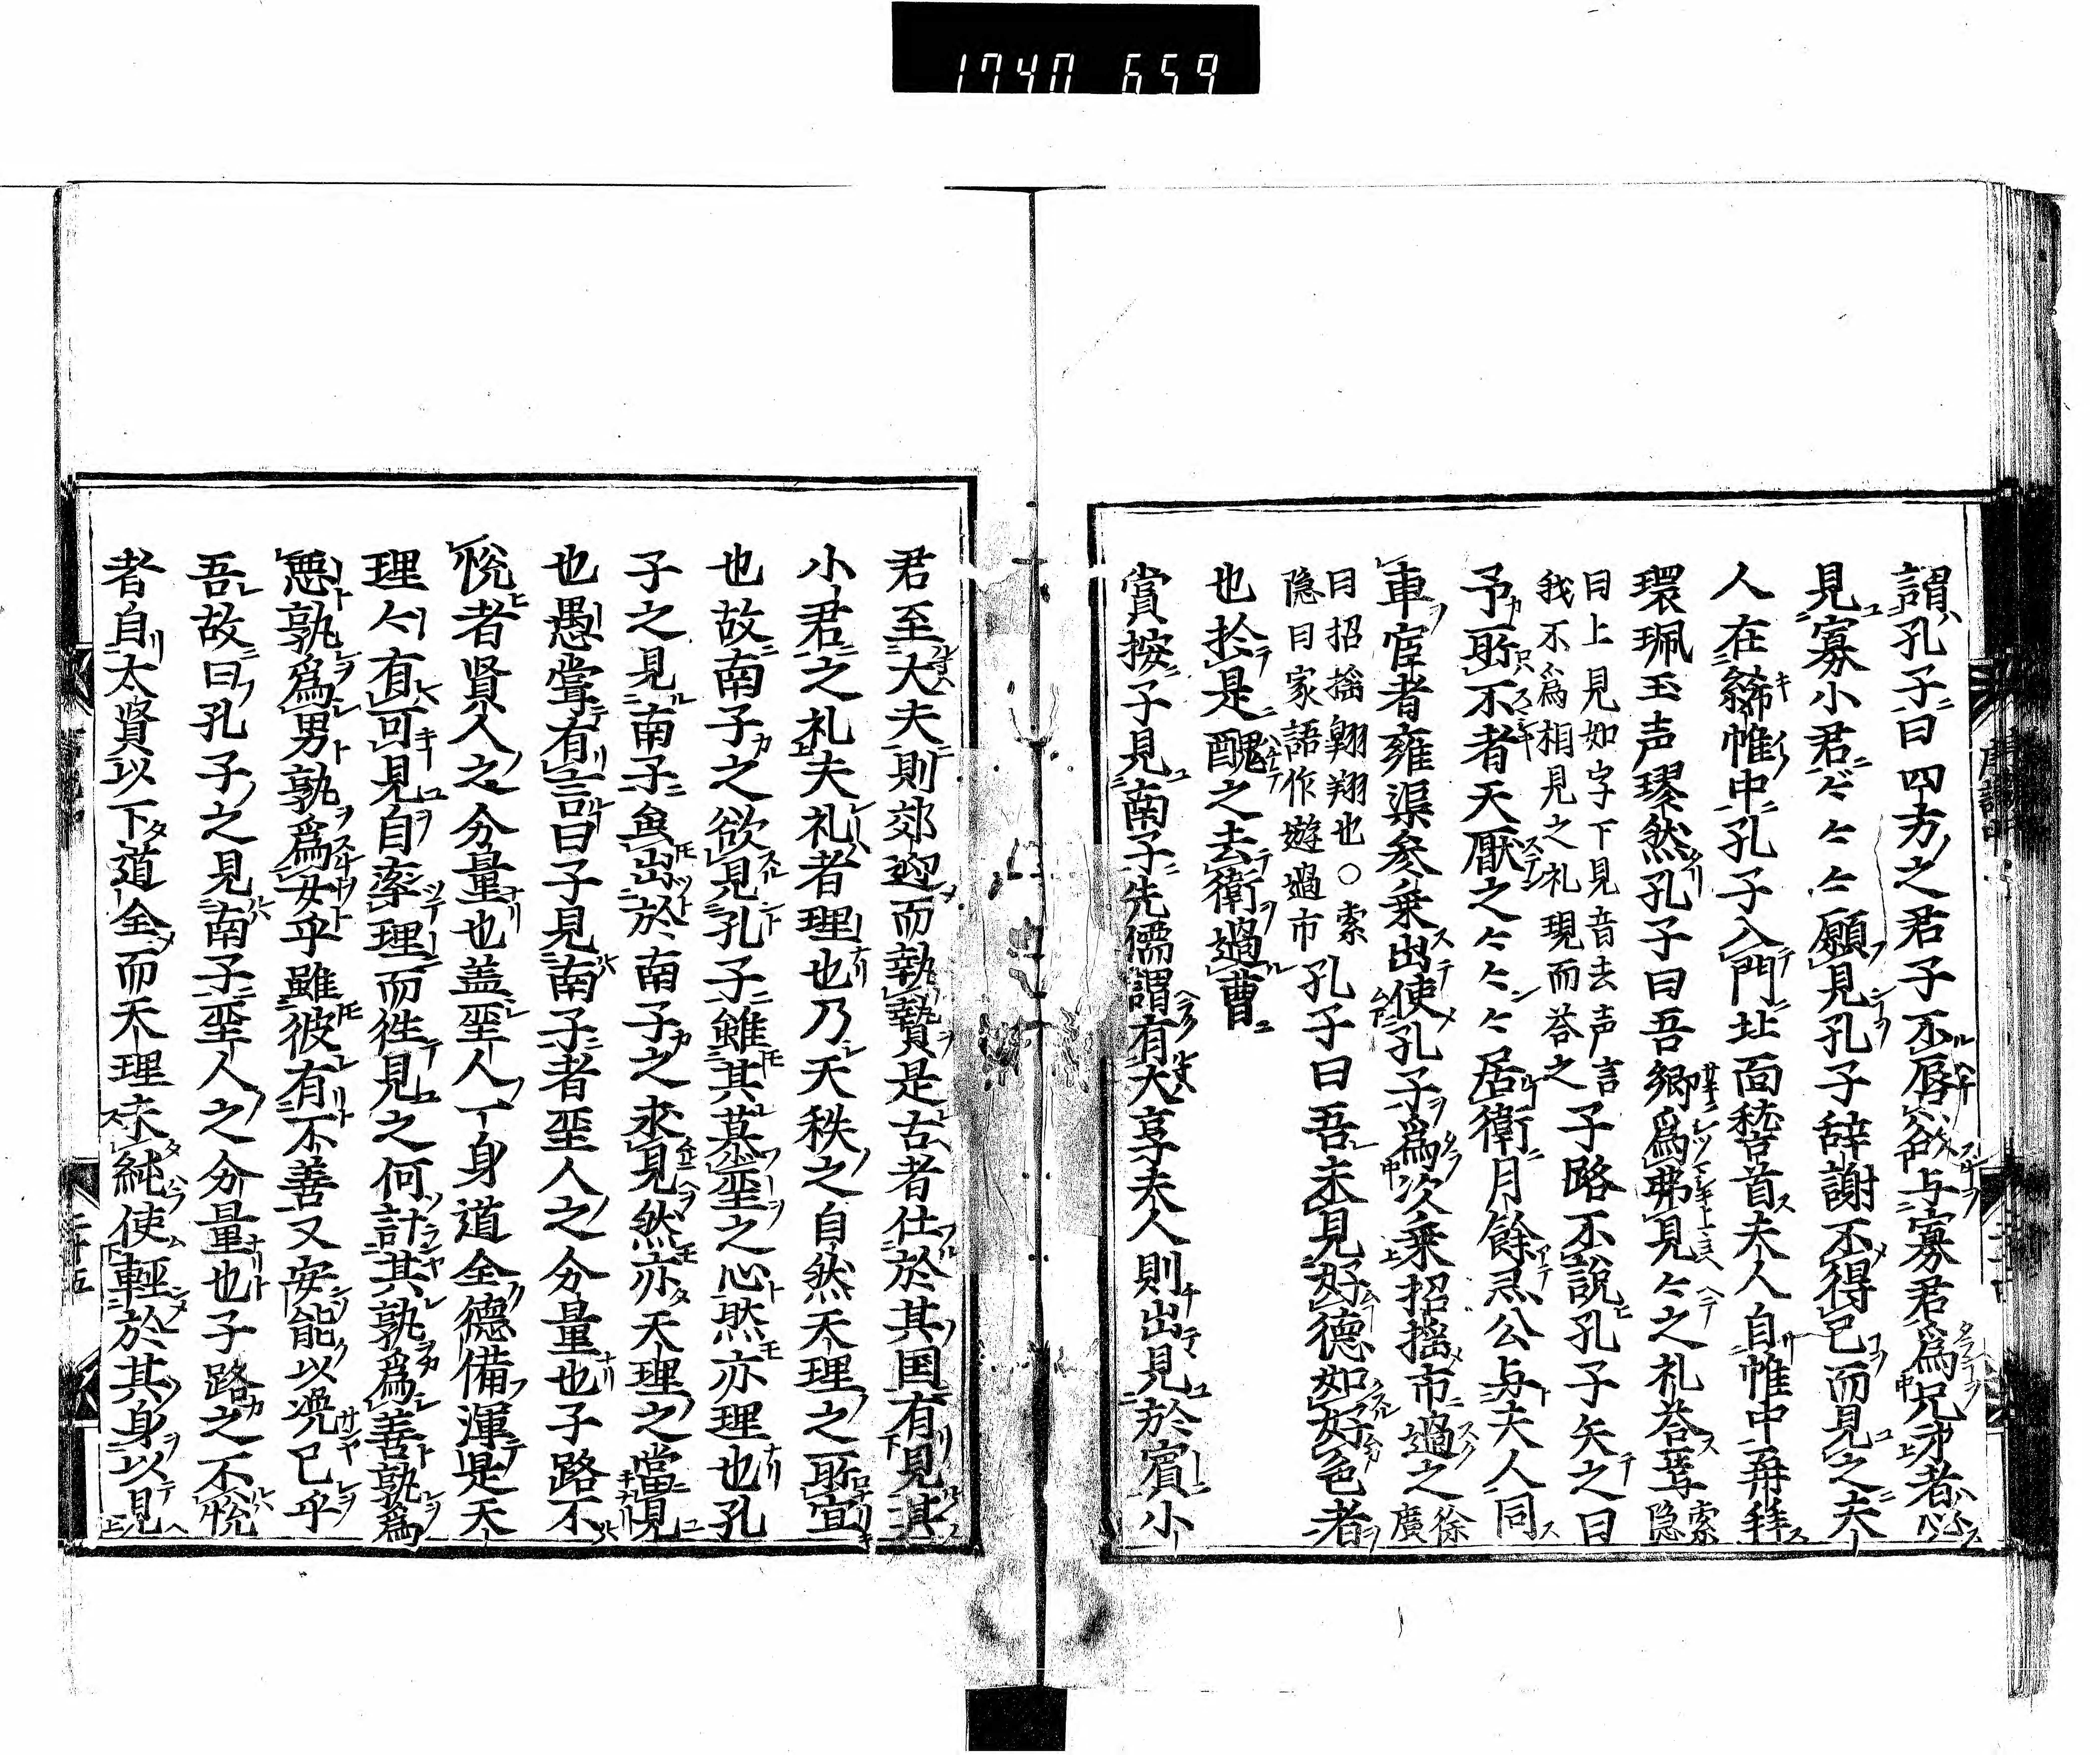 1740 659
謂孔子曰四方之君子不辱欲与寡君爲兄弟者必
見寡小君〻〻〻願見孔子辞謝不得已而見之夫
人在絺帷中孔子入門北面稽首夫人自帷中再拜
環珮玉声璆然孔子曰吾郷爲弗見〻之礼荅焉 索隠
曰上見如字下見音去声言
我不爲相見之礼現而荅之 子路不說孔子矢之曰
予所不者天厭之〻〻〻居衛月餘灵公与夫人同
車宦者雍渠参乗出使孔子爲次乗招揺市過之 徐廣
曰招揺翱翔也○索
隠曰家語作遊過市 孔子曰吾未見好德如好色者
也於是醜之去衛過曹
賞按子見南子先儒謂有大享夫人則出見於賓小
君至大夫則郊迎而執贄是古者仕於其国有見其
小君之礼夫礼者理也乃天秩之自然天理之所宜
也故南子之欲見孔子雖其慕聖之心然亦理也孔
子之見南子毎出於南子之求見然亦天理之當見
也愚甞有言曰子見南子者聖人之分量也子路不
悅者賢人之分量也盖聖人一身道全德備渾是天
理〻有可見自率理而徃見之何計其孰爲善孰爲
悪孰爲男孰爲女乎雖彼有不善又安能以凂已乎
吾故曰孔子之見南子聖人之分量也子路之不悅
者自大賢以下道全而天理未純使輕於其身以見
二十五